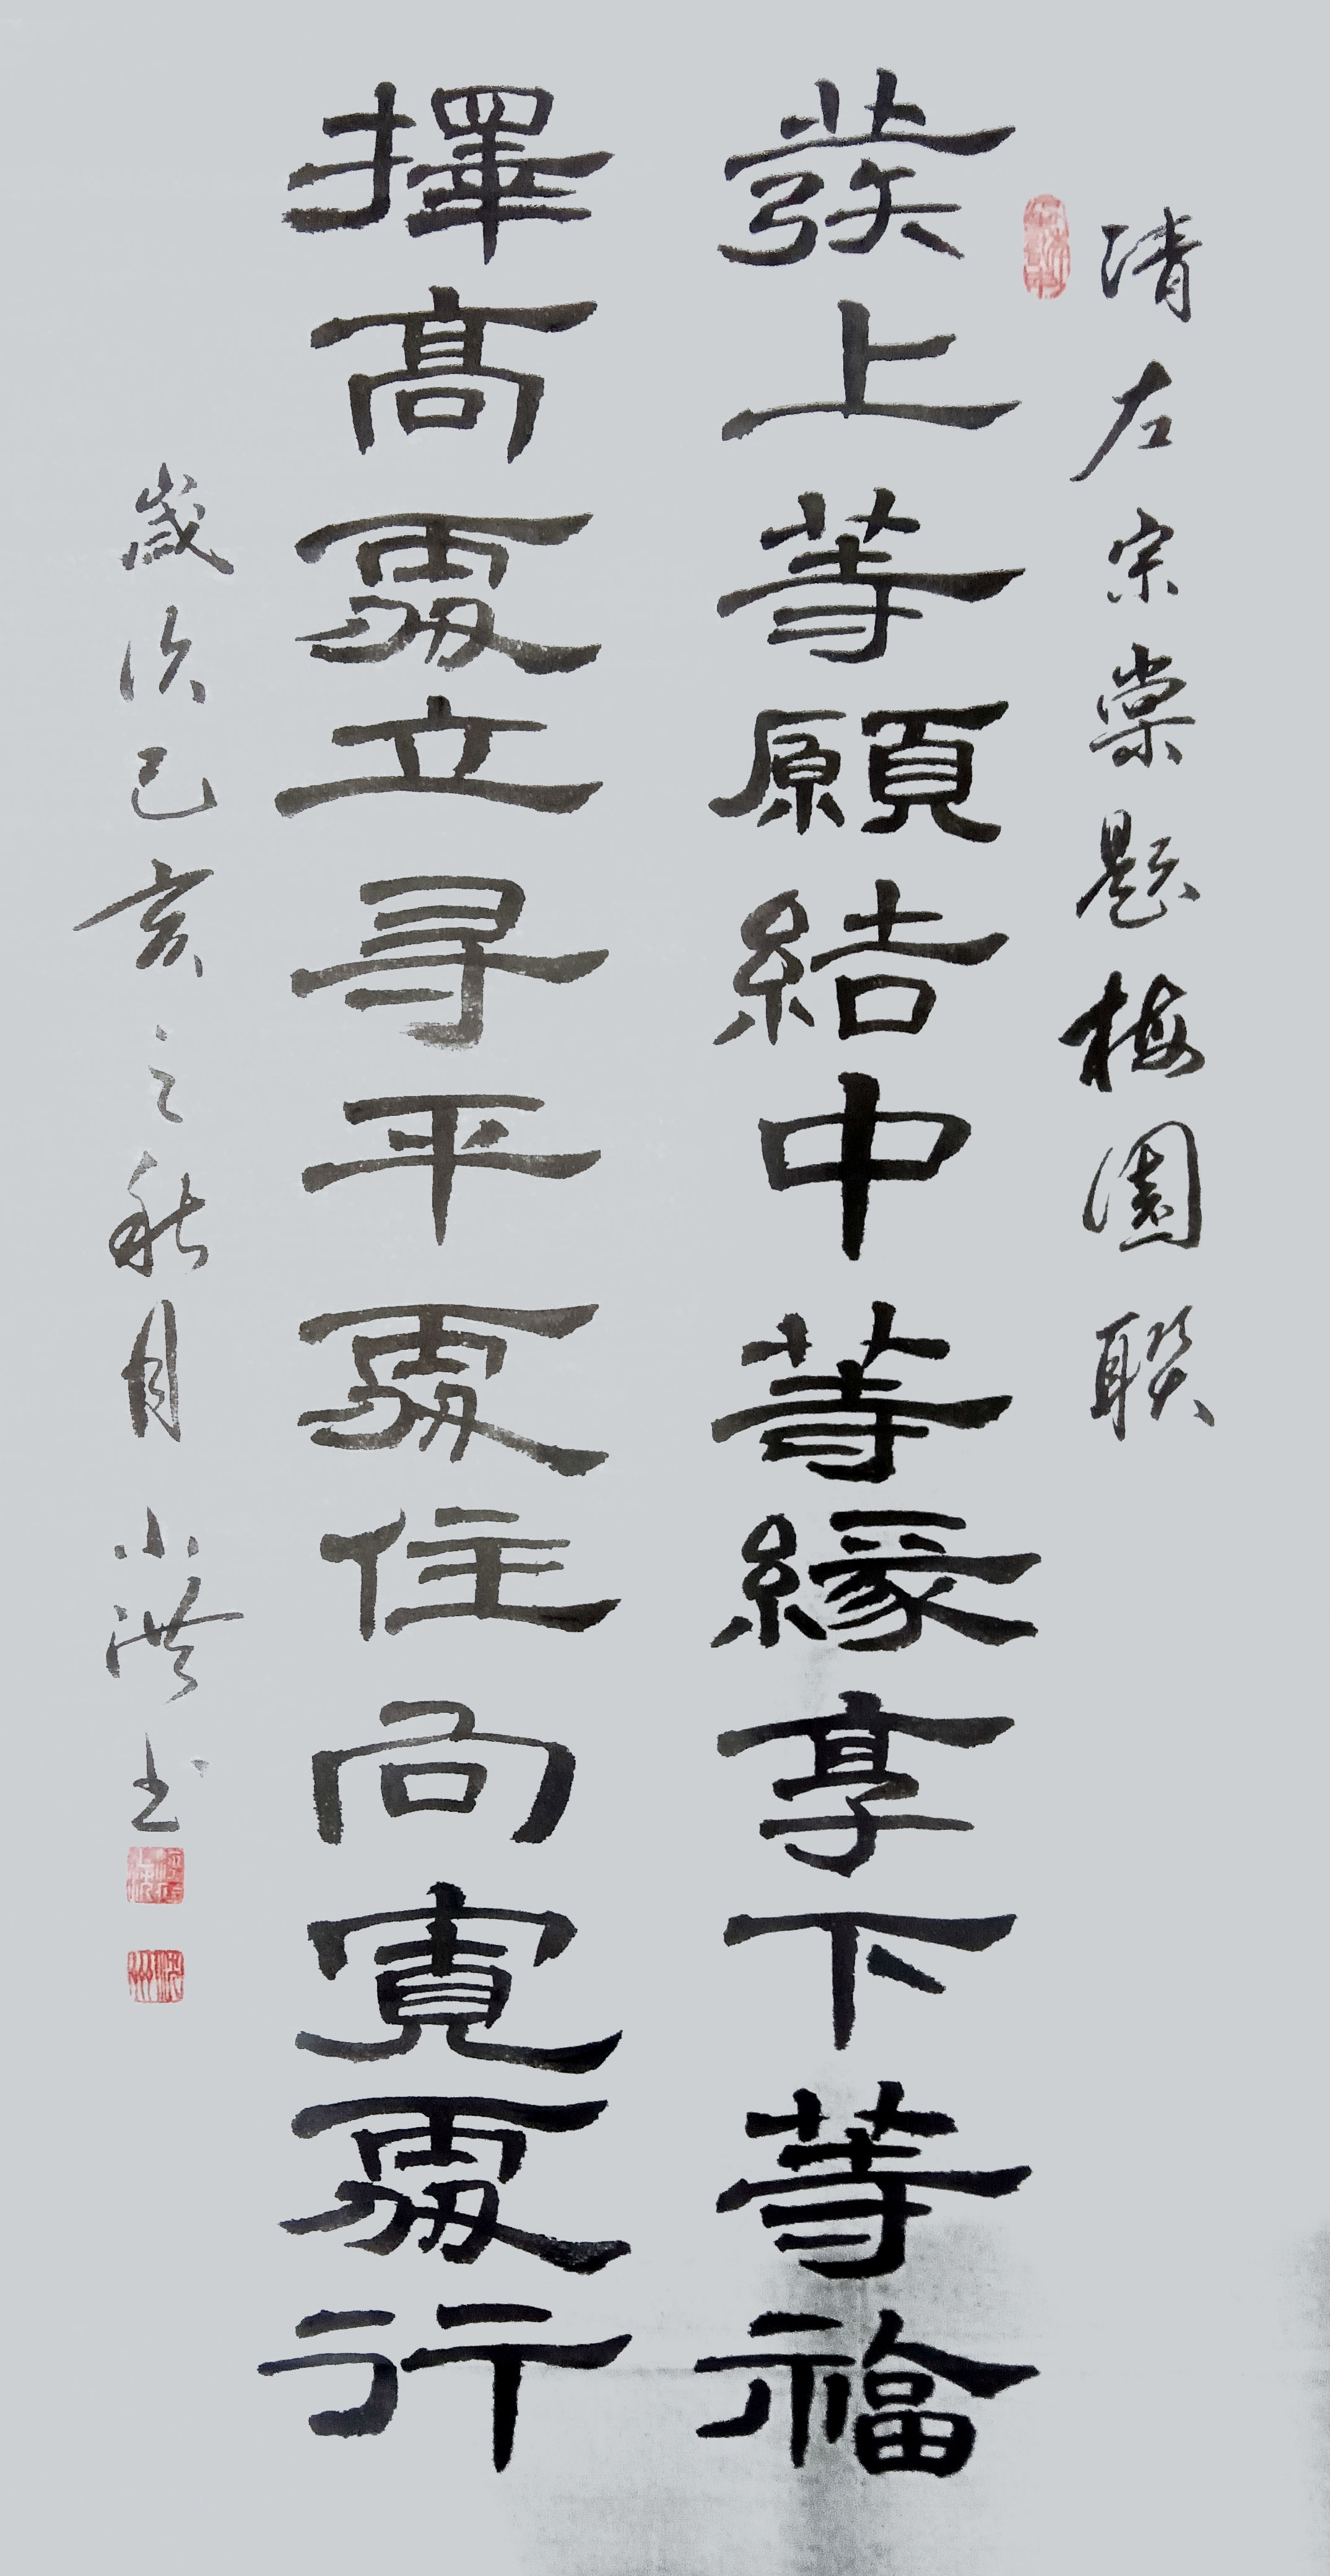 清左宗棠題梅園聯
發上等願結中等緣享下等福
擇高處立尋平處住向寬處行
歲次己亥之秋月小洪书